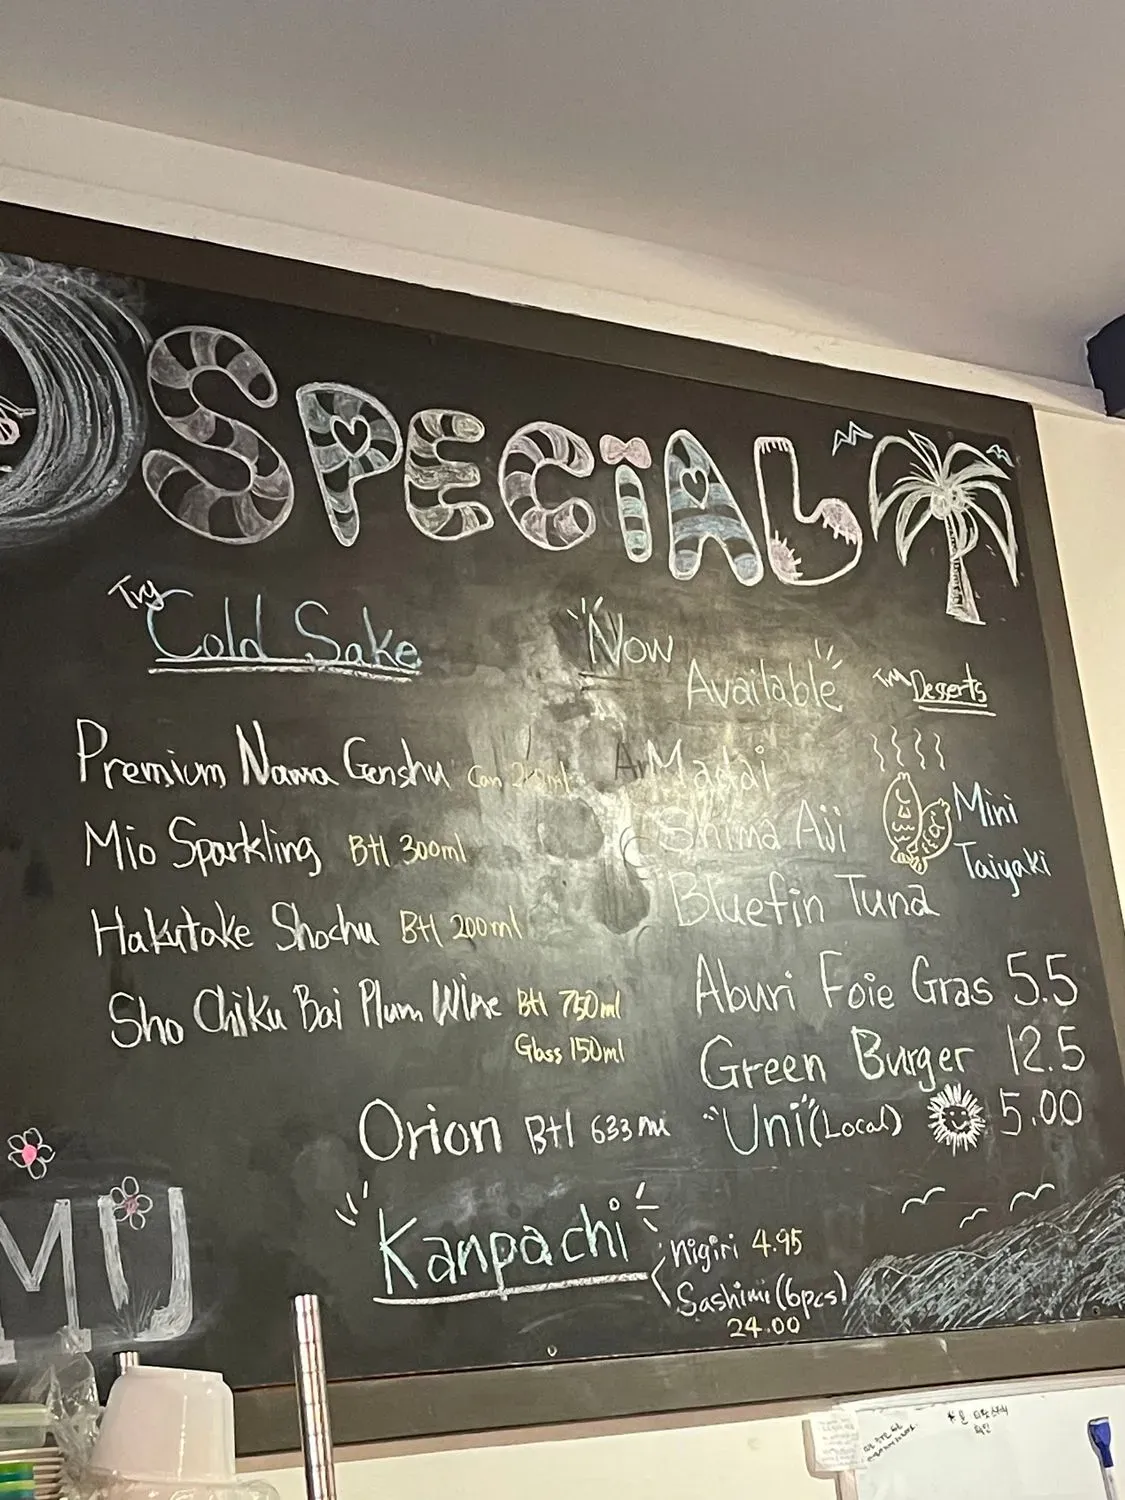 SPECIAL
Try
Cold Sake
Premium Nama Genshu Can
Mio Sparkling Btl 300ml
Hakutake Shochu Btl 200ml
Sho Chiku Bai Plum Wine Btl 750ml
Glass 150ml
Orion Btl 633ml
"Now
Available"
Madai
Shima Aji
Bluefin Tuna
Aburi Foie Gras 5.5
Green Burger 12.5
"Uni" (Local) 5.00
Try Deserts
Mini
Taiyaki
"Kanpachi"
Nigiri 4.95
Sashimi (6pcs)
24.00
MU